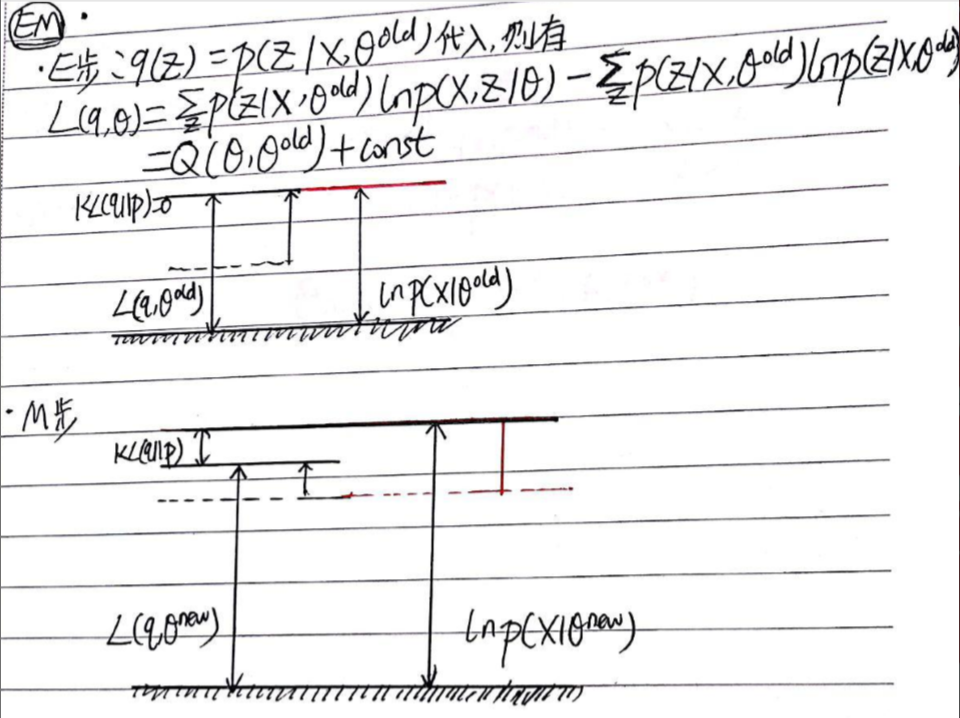 EM
·E步:q(z)=p(Z|X,θ^old)代入,则有
L(q,θ)=∑_z p(Z|X,θ^old)lnp(X,Z|θ)-∑_z p(Z|X,θ^old)lnp(Z|X,θ^old)
=Q(θ,θ^old)+const
KL(q||p)=0
L(q,θ^old) lnp(X|θ^old)
·M步
KL(q||p)
L(q,θ^new) lnp(X|θ^new)